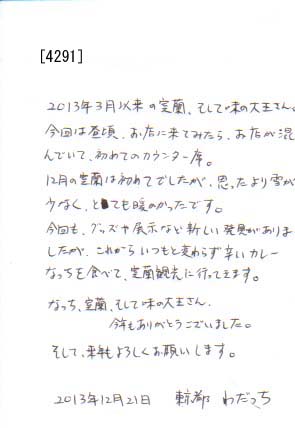 [4291]
2013年3月以来の室蘭、そして味の大王さん。
今回は昼頃、お店に来てみたら、お店が混
んでいて、初めてのカウンター席。
12月の室蘭は初めてでしたが、思ったより雪が
少なく、とても暖かったです。
今回も、グッズや展示など新しい発見がありま
したが、これからいつもと変わらず辛いカレー
なっちを食べて、室蘭観光に行ってきます。
なっち、室蘭、そして味の大王さん、
今年もありがとうございました。
そして、来年もよろしくお願いします。
2013年12月21日 東京都 わだっち